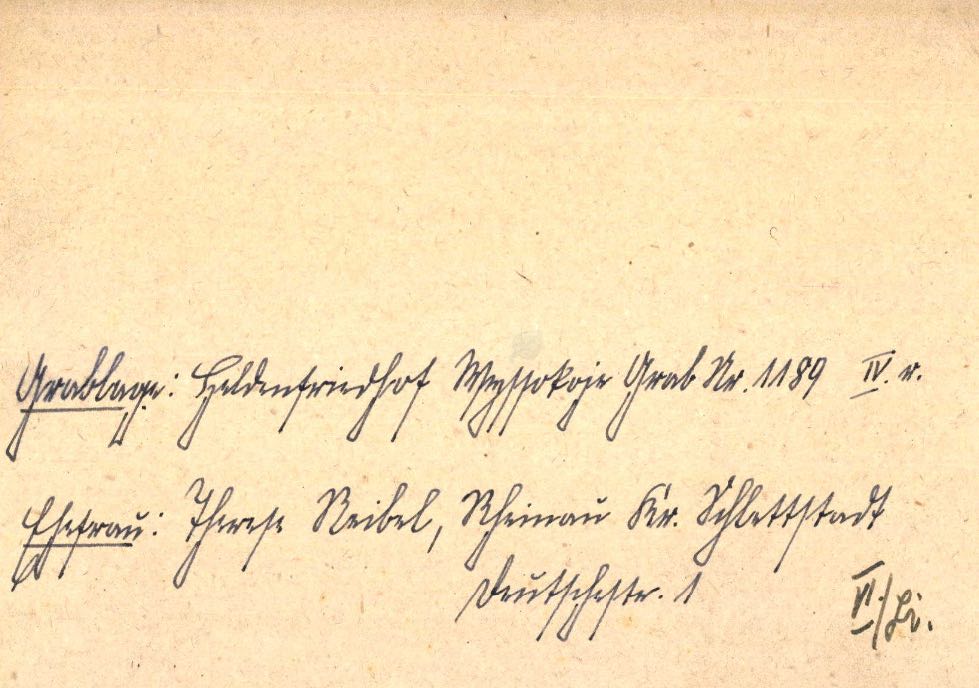 Grablage: Heldenfriedhof Wyssokoje Grab Nr. 1189 IV. r.
Ehefrau: Therese Reibel, Rheinau Kr. Schlettstadt
Deutschestr. 1
VI/Li.